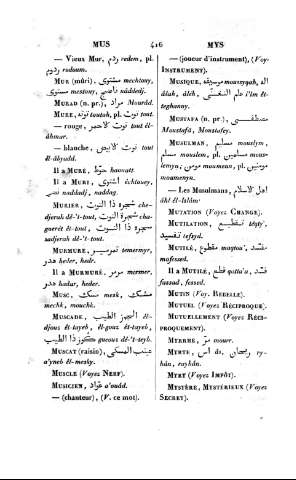 MUS 416 MYS
— Vieux Mur, ردم redm, pl.
ردوم redoum.
MUR (mûri), مستوى mechtouy,
مستوى mestouy, ناضج náddedj.
MURAD (n. pr.), مراد Mourád.
MURE, توتة toutah, pl. توت tout.
— rouge, توت الاحمر tout êl-
âhmar.
— blanche, توت الابيض tout
êl-âbyadd.
Il a MURÉ, حوّط haouatt.
Il a MURI, اشتوى échtouey,
نضج naddadj, naddag.
MURIER, شجرة ذا التوت cha-
djerah dê-'t-tout, شجرة التوت cha-
guerêt êt-tout, شجرة التوت
sadjerah dê-'t-tout.
MURMURE, تمرمير temermyr,
هدر heder, hedr.
Il a MURMURÉ, مرمر mermer,
هدر hadar, heder.
MUSC, مسك mesk, مشك
mechk, mouchk.
MUSCADE, الجوز الطيب êl-
djouz êt-tayeb, êl-gouz êt-tayeb,
جوز ذا الطيب gueouz dê-'t-teyb.
MUSCAT (raisin), عينب المسكي
a'yneb êl-mesky.
MUSCLE (Voyez NERF).
MUSICIEN, عوّاد a'oudd.
— (chanteur), (V. ce mot).
— (joueur d'instrument), (Voy.
INSTRUMENT).
MUSIQUE, موسيقه moussyqah, اله
âlah, âléh, علم التغني i'lm êt-
teghanny.
MUSTAFA (n. pr.), مصطفى
Moustafä, Moustafey.
MUSULMAN, مسلم mouslym,
مسلم moualem, pl. مسلمين mous-
lemyn; مومن moumen, pl. مومنين
moumenyn.
— Les Musulmans, اهل الاسلام
âhl êl-îslâm.
MUTATION (Voyez CHANGE).
MUTILATION, تقطيع téqty',
تفسيد tefsyd.
MUTILÉ, مقطوع maqtou', مفسد
mofessed.
Il a MUTILÉ, قطع qatta'a, فسد
fassad, fessed.
MUTIN (Voy. REBELLE).
MUTUEL (Voyez RÉCIPROQUE).
MUTUELLEMENT (Voyez RÉCI-
PROQUEMENT).
MYRRHE, مور mourr.
MYRTE, اس ds, ريحان ry-
hân, rayhân.
MYRT (Voyez IMPÔT).
MYSTÈRE, MYSTÉRIEUX (Voyez
SECRET).